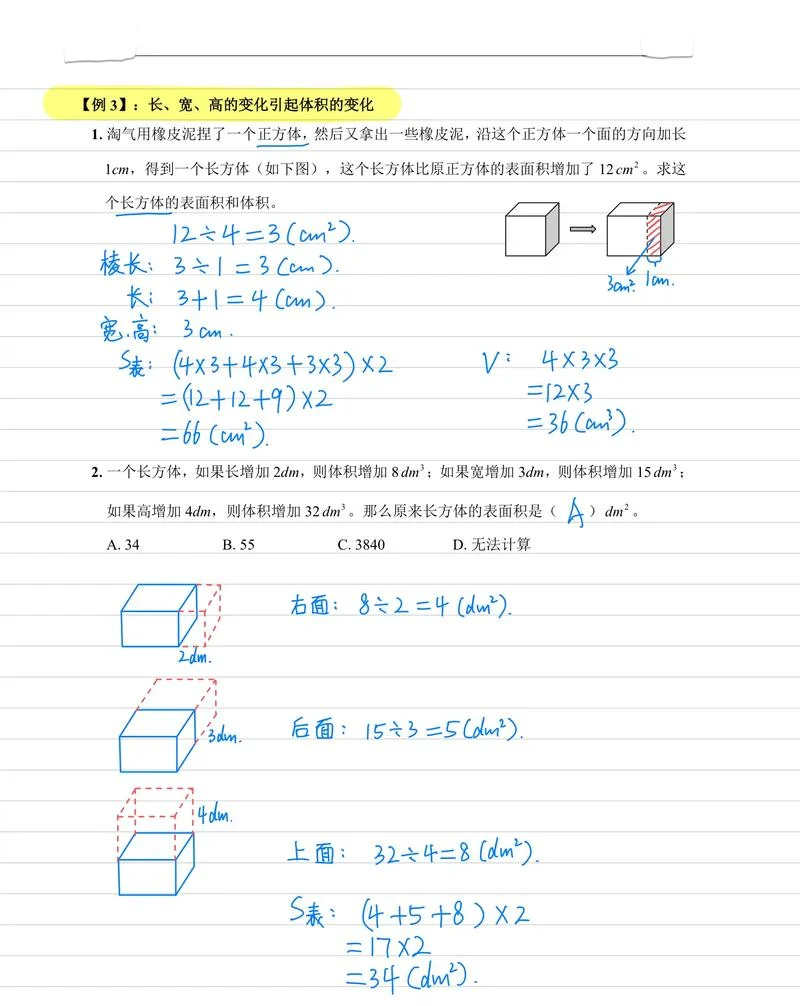 【例 3】：长、宽、高的变化引起体积的变化
1. 淘气用橡皮泥捏了一个正方体，然后又拿出一些橡皮泥，沿这个正方体一个面的方向加长
1cm，得到一个长方体（如下图），这个长方体比原正方体的表面积增加了 12 cm²。求这
个长方体的表面积和体积。
12÷4=3(cm²).
棱长：3÷1=3(cm).
长：3+1=4(cm).
宽.高：3cm.
3cm². 1cm.
S表：(4×3+4×3+3×3)×2
=(12+12+9)×2
=66(cm²).
V：4×3×3
=12×3
=36(cm³).
2. 一个长方体，如果长增加 2dm，则体积增加 8 dm³；如果宽增加 3dm，则体积增加 15 dm³；
如果高增加 4dm，则体积增加 32 dm³。那么原来长方体的表面积是（ A ）dm²。
A. 34 B. 55 C. 3840 D. 无法计算
右面：8÷2=4(dm²).
2dm.
后面：15÷3=5(dm²).
3dm.
4dm.
上面：32÷4=8(dm²).
S表：(4+5+8)×2
=17×2
=34(dm²).